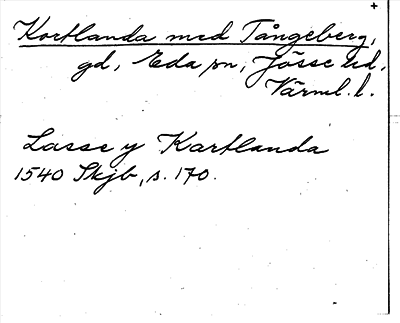 +
Kortlanda med Tångeberg,
gd, Eda sn, Jösse hd.
Värml. l.
Lasse y Kartlanda
1540 Skjb, s. 170.